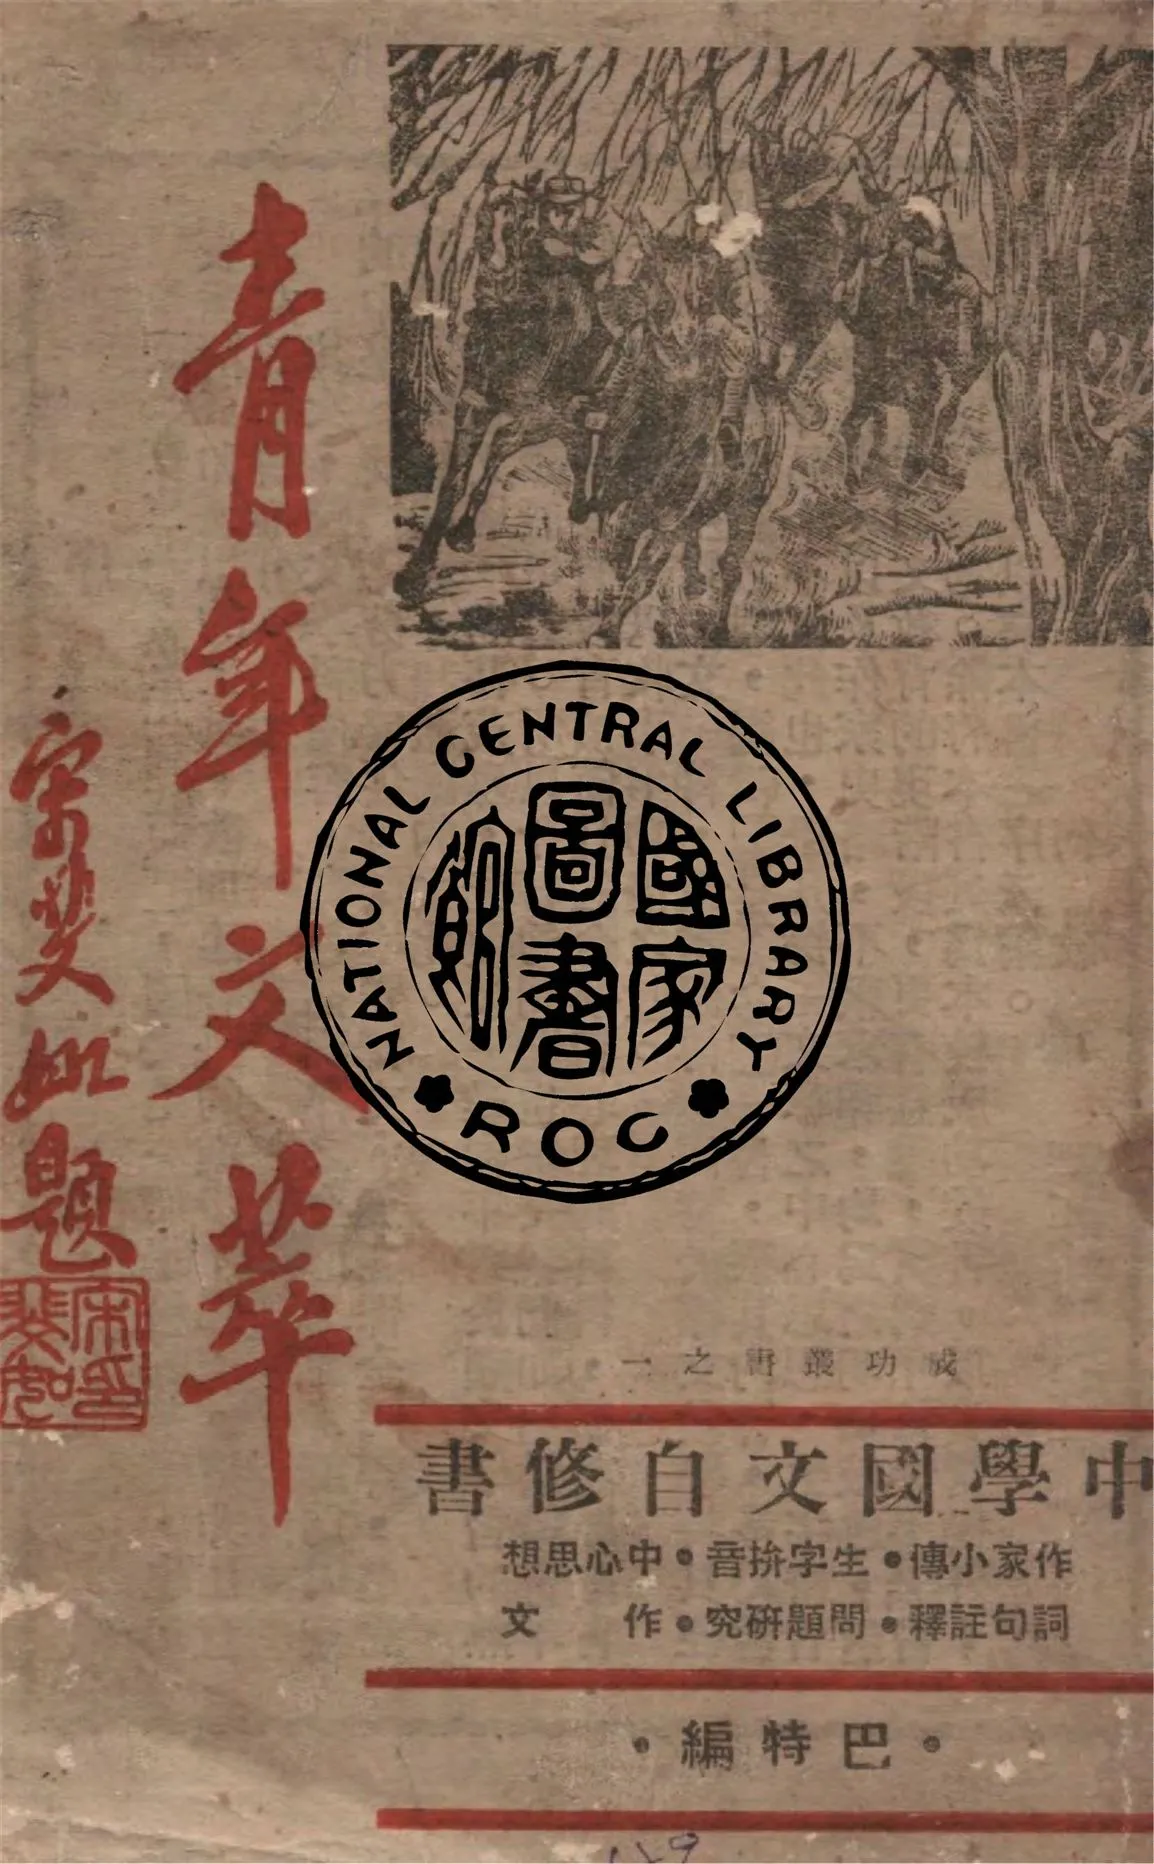 青年文萃
宋斐如題
宋印斐如
NATIONAL CENTRAL LIBRARY
ROC
國家圖書館
成功叢書之一
中學國文自修書
作家小傳•生字拚音•中心思想
詞句註釋•問題研究•作文
•巴特編•